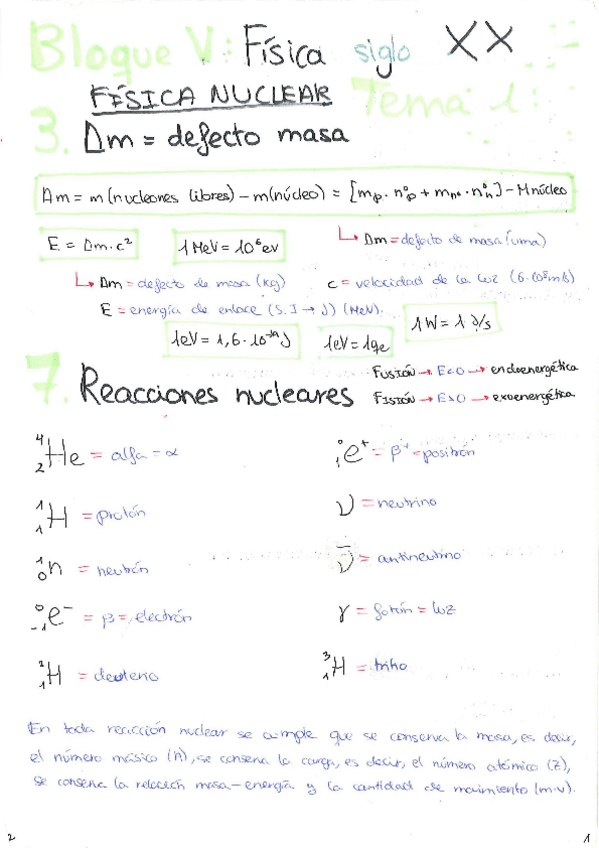 Bloque V: Física siglo XX
FÍSICA NUCLEAR Tema 1:
3. Δm = defecto masa
Δm = m(nucleones libres) - m(núcleo) = [mp · nºp + mn · nºn] - Mnúcleo
E = Δm·c² 1 MeV = 10⁶ ev ↳ Δm = defecto de masa (uma)
↳ Δm = defecto de masa (kg) c = velocidad de la luz
E = energía de enlace (S.I → J) (MeV).
1eV = 1,6·10⁻¹⁹J 1eV = 1qe 1W = 1 J/s
7. Reacciones nucleares
FUSIÓN → E<0 → endoenergética
FISIÓN → E>0 → exoenergética
⁴₂He = alfa = α ⁰₁e⁺ = β⁺ = positrón
¹₁H = protón ν = neutrino
¹₀n = neutrón ν̄ = antineutrino
⁰₋₁e⁻ = β = electrón γ = fotón = luz
²₁H = deuterio ³₁H = tritio
En toda reacción nuclear se cumple que se conserva la masa, es decir,
el número másico (n), se conserva la carga, es decir, el número atómico (Z),
se conserva la relación masa-energía y la cantidad de movimiento (m·v).
2 1